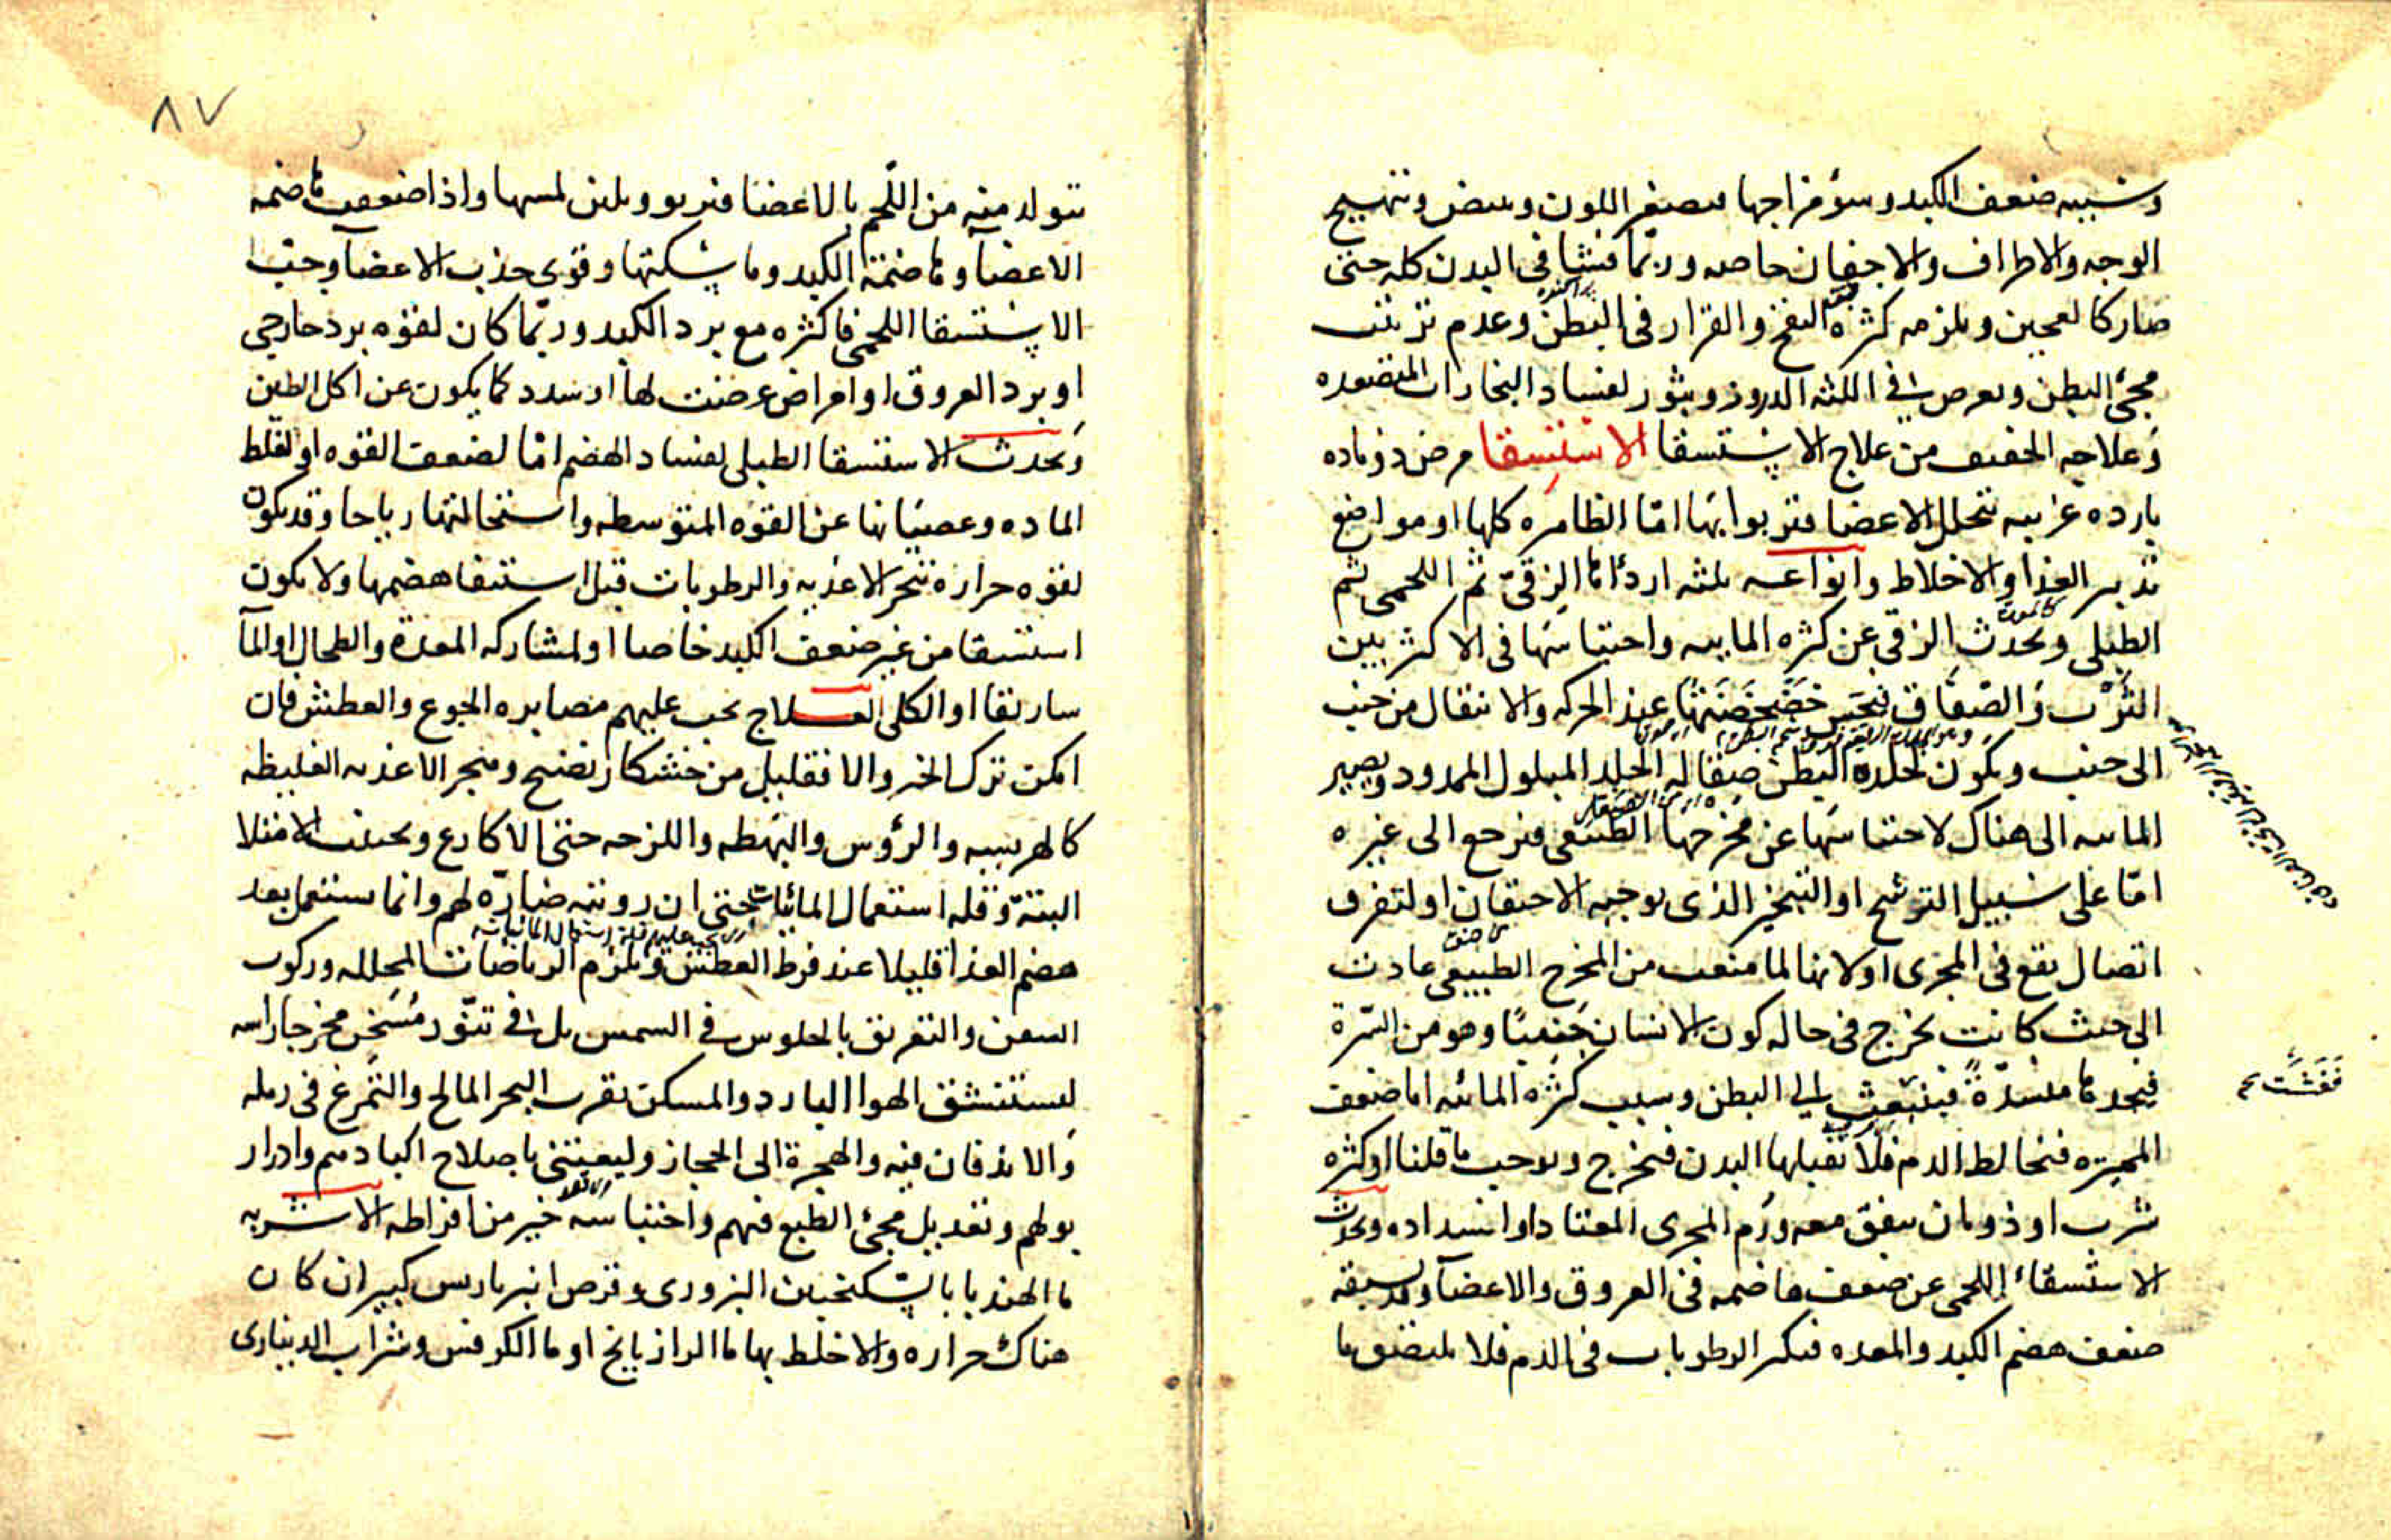 وسببه ضعف الكبد وسؤ مزاجها فيصفر اللون ويبيض ويتهيج
الوجه والاطراف والاجفان خاصه وربّما فشا في البدن كله حتى
صار كالعجين ويلزمه كثره النفخ والقرار في البطن وعدم ترتب
مجئ البطن ويعرض في اللثه الدروز وبثور لفساد البخارات المتصعده
وعلاجه الخفيف من علاج الاستسقا الاستسقا مرض ذو ماده
بارده غريبه تتخلل الاعضا فتربوا بها امّا الظاهره كلها او مواضع
تدبير الغذا والاخلاط وانواعه ثلثه اردأها الزقيّ ثم اللحمى ثم
الطبلى ويحدث الزقي عن كثره المائيه واحتباسها في الاكثر بين
الثرب والصّفاق فيحس خضخضتها عند الحركه والانتقال من جنب
الى جنب ويكون لجلده البطن صقاله الجلد المبلول الممدود ويصير
المائيه الى هناك لاحتباسها عن مخرجها الطبيعي فيرجع الى غيره
امّا على سبيل الترشح او التبخير الذى يوجبه الاحتقان او لتفرق
اتصال يقع في المجرى او لانها لما منعت من المخرج الطبيعي عادت
الى حيث كانت تخرج في حاله كون الانسان جنينًا وهو من السّرة
فيجدها منسدّة فينبعث الى البطن وسبب كثره المائيه اما ضعف
المميزه فتخالط الدم فلا تقبلها البدن فيخرج ويوجب ما قلنا او كثره
شرب او ذوبان يتفق معه ورم المجرى المعتاد او انسداده ويحدث
الاستسقاء اللحمى عن ضعف هاضمه في العروق والاعضآ ويسبقه
ضعف هضم الكبد والمعده فيكثر الرطوبات في الدم فلا يلتصق ما
فَفَشَتْ
٨٧
يتولد منه من اللّحم بالاعضا فيربو ويلين لمسها واذا ضعفت هاضمه
الاعضآ وهاضمة الكبد وماسكتها وقوى جذب الاعضآ وجب
الاستسقا اللحمى فاكثره مع برد الكبد وربّما كان لقوه برد خارجى
او برد العروق او امراض عرضت لها او سدد كما يكون عن اكل الطين
ويحدث الاستسقا الطبلى لفساد الهضم امّا لضعف القوه او لغلظ
الماده وعصيانها عن القوه المتوسطه واستحالتها رياحا وقد يكون
لقوه حراره تبخر الاغذيه والرطوبات قبل استيفا هضمها ولا يكون
استسقا من غير ضعف الكبد خاصا او لمشاركه المعدة والطحال او الما
ساريقا او الكلى العلاج يجب عليهم مصابره الجوع والعطش فان
امكن ترك الخبز والا فقليل من خشكار نضيج ويهجر الاغذيه الغليظه
كالهريسه والرؤس والبهطه واللزجه حتى الاكارع ويجتنب الامتلا
البتّة وقله استعمال المائيات حتى ان رويته ضارّه لهم وانما يستعمل بعد
هضم الغذا قليلا عند فرط العطش ويلزم الرياضات المحلله وركوب
السفن والتعريق بالجلوس في الشمس بل في تنّور مُسَخن مخرجا راسه
ليستنشق الهوا البارد والمسكن بقرب البحر المالح والتّمرغ في رمله
والاندفان فيه والهجرة الى الحجاز وليعتنى باصلاح اكبادهم وادرار
بولهم وتعديل مجئ الطبع فيهم واحتباسه خير من افراطه الاشربه
ما الهندبا بالسكنجبين البزورى وقرص انبرباريس كبير ان كان
هناك حراره والا خلط بها ما الرازيانج او ما الكرفس وشراب الدينارى